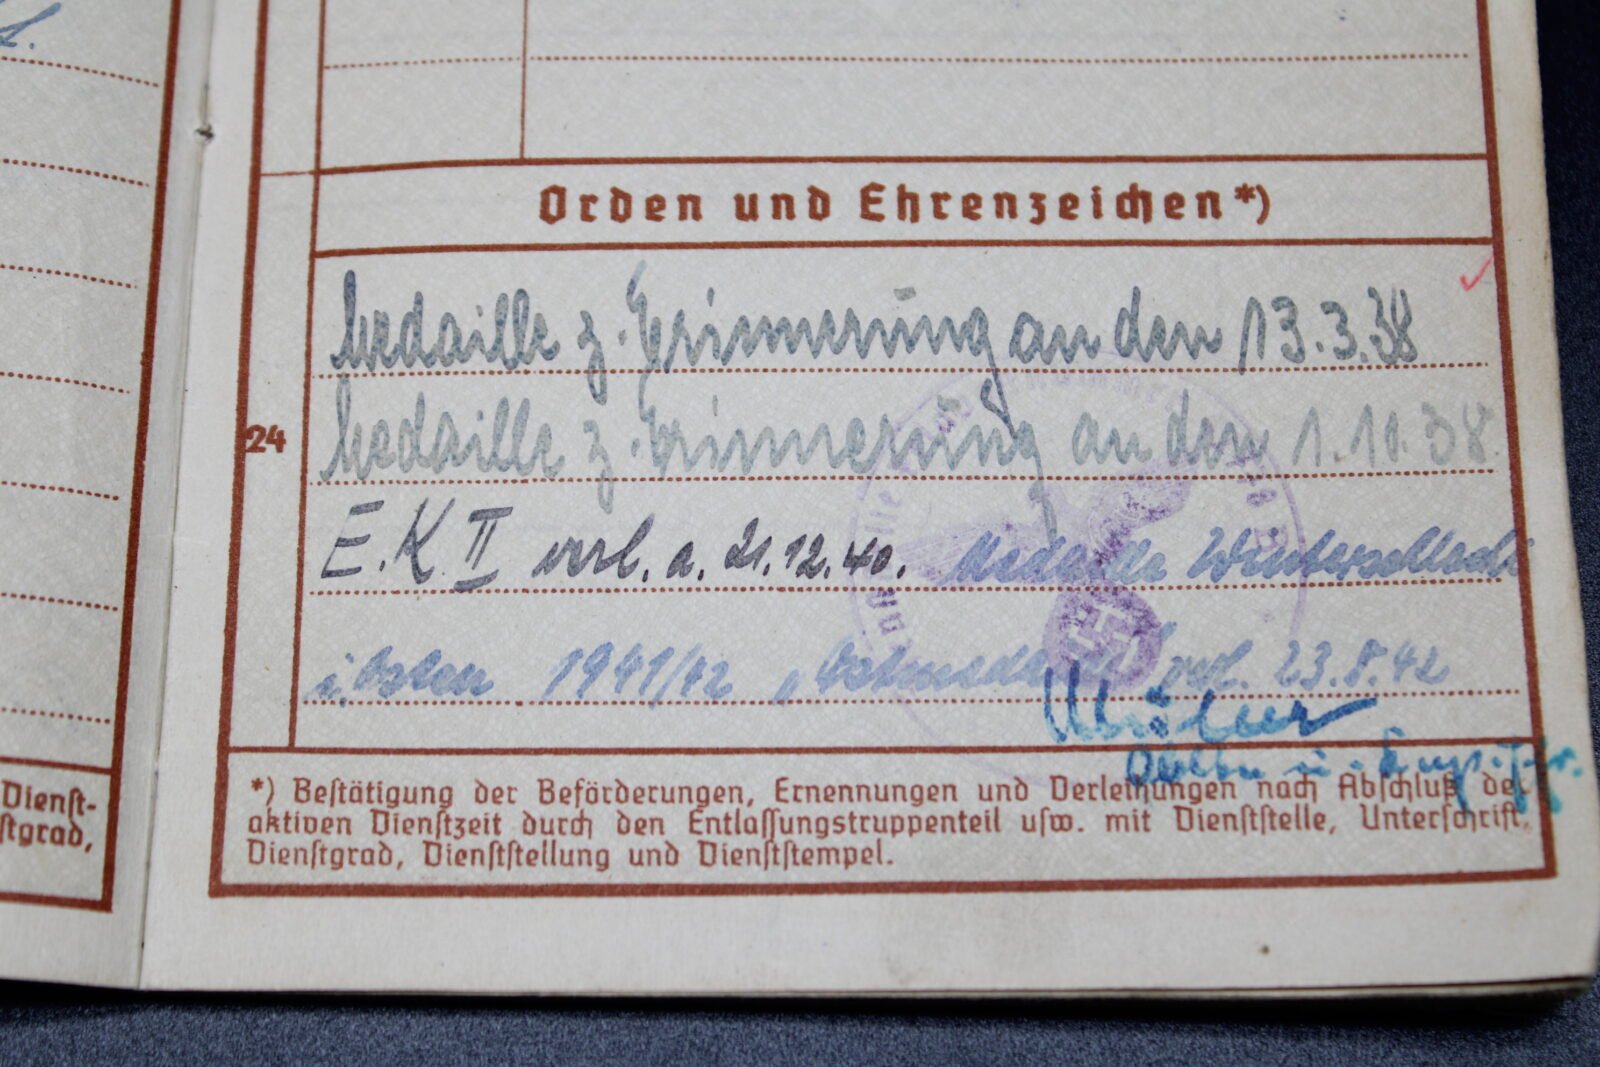 Orden und Ehrenzeichen*)
Medaille z. Erinnerung an den 13.3.38
24
Medaille z. Erinnerung an den 1.10.38.
E.K. II verl. a. 21.12.40. Medaille Winterschlacht
i. Osten 1941/42 „Ostmedaille verl. 23.8.42
Obltn u. Komp.
*) Bestätigung der Beförderungen, Ernennungen und Verleihungen nach Abschluß der
aktiven Dienstzeit durch den Entlassungstruppenteil usw. mit Dienststelle, Unterschrift,
Dienstgrad, Dienststellung und Dienststempel.
Dienst-
stgrad,